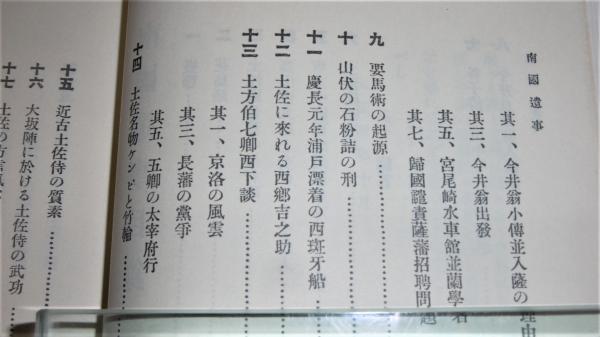 南國遺事
其一、今井翁小傳並入薩の理由
其三、今井翁出發
其五、宮尾崎水車館並蘭學者
其七、歸國譴責薩藩招聘問題
九 要馬術の起源………
十 山伏の石粉詰の刑………
十一 慶長元年浦戸漂着の西班牙船…
十二 土佐に來れる西鄕吉之助………
十三 土方伯七卿西下談
其一、京洛の風雲
其三、長藩の黨爭
其五、五卿の太宰府行
十四 土佐名物ケンピと竹輪………
十五 近古土佐侍の質素………
十六 大坂陣に於ける土佐侍の武功…
十七 土佐の方言